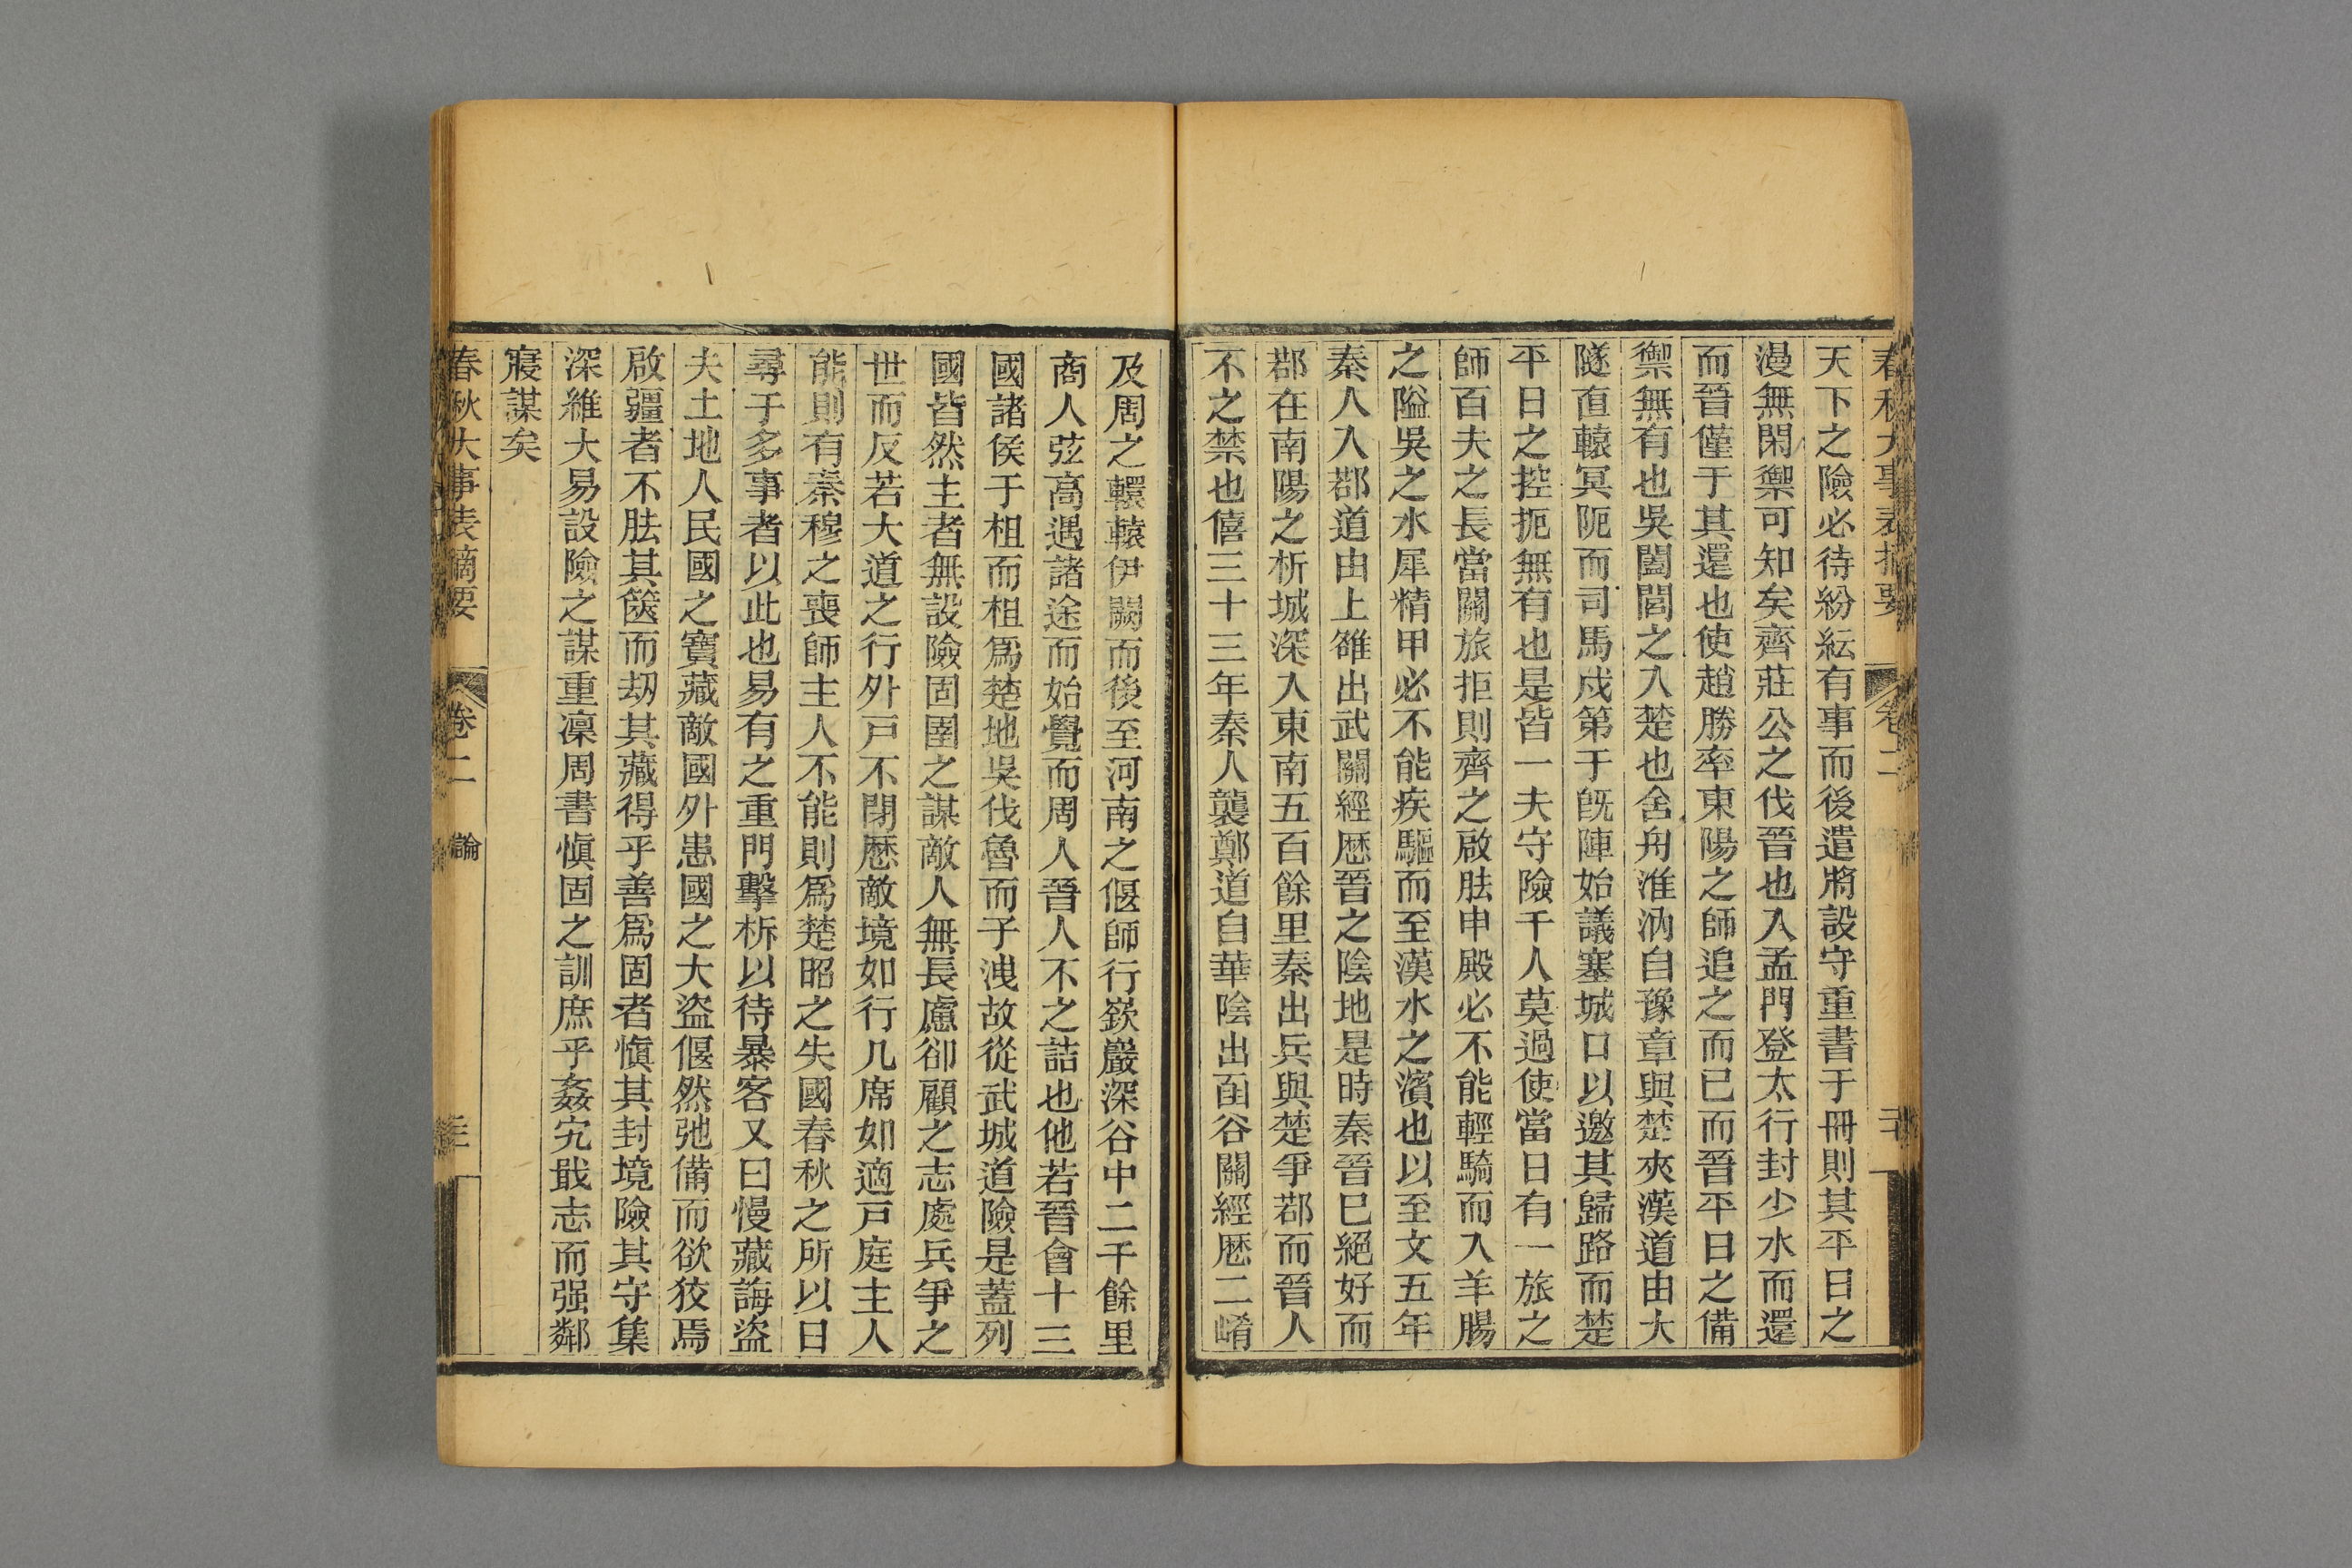 春秋大事表摘要 卷二
天下之險必待紛紜有事而後遣將設守重書于冊則其平日之
漫無閑禦可知矣齊莊公之伐晉也入孟門登太行封少水而還
而晉僅于其還也使趙勝率東陽之師追之而已而晉平日之備
禦無有也吳闔閭之入楚也舍舟淮汭自豫章與楚夾漢道由大
隧直轅冥阨而司馬戍第于旣陣始議塞城口以邀其歸路而楚
平日之控扼無有也是皆一夫守險千人莫過使當日有一旅之
師百夫之長當關旅拒則齊之啟胠申殿必不能輕騎而入羊腸
之隘吳之水犀精甲必不能疾驅而至漢水之濱也以至文五年
秦人入鄀道由上雒出武關經歷晉之陰地是時秦晉已絕好而
鄀在南陽之析城深入東南五百餘里秦出兵與楚爭鄀而晉人
不之禁也僖三十三年秦人襲鄭道自華陰出函谷關經歷二崤
及周之轘轅伊闕而後至河南之偃師行嶔巖深谷中二千餘里
商人弦高遇諸途而始覺而周人晉人不之詰也他若晉會十三
國諸侯于柤而柤爲楚地吳伐魯而子洩故從武城道險是蓋列
國皆然主者無設險固圉之謀敵人無長慮卻顧之志處兵爭之
世而反若大道之行外戸不閉歷敵境如行几席如適戸庭主人
能則有秦穆之喪師主人不能則爲楚昭之失國春秋之所以日
尋于多事者以此也易有之重門擊柝以待暴客又曰慢藏誨盜
夫土地人民國之寶藏敵國外患國之大盜偃然弛備而欲狡焉
啟疆者不胠其篋而刼其藏得乎善爲固者愼其封境險其守集
深維大易設險之謀重凜周書愼固之訓庶乎姦宄戢志而强鄰
寢謀矣
春秋大事表摘要 卷二 論